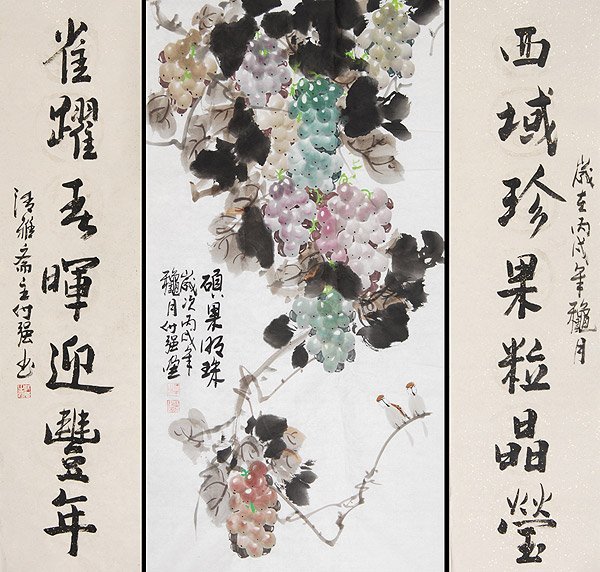 西域珍果粒晶瑩
歲在丙戌年龝月
碩果明珠
歲次丙戌年
龝月付强畫
雀躍春暉迎豐年
清雅齋主付强書